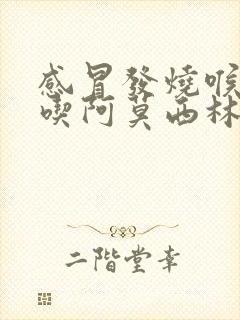 感冒發燒喉
喫阿莫西林
二階堂幸